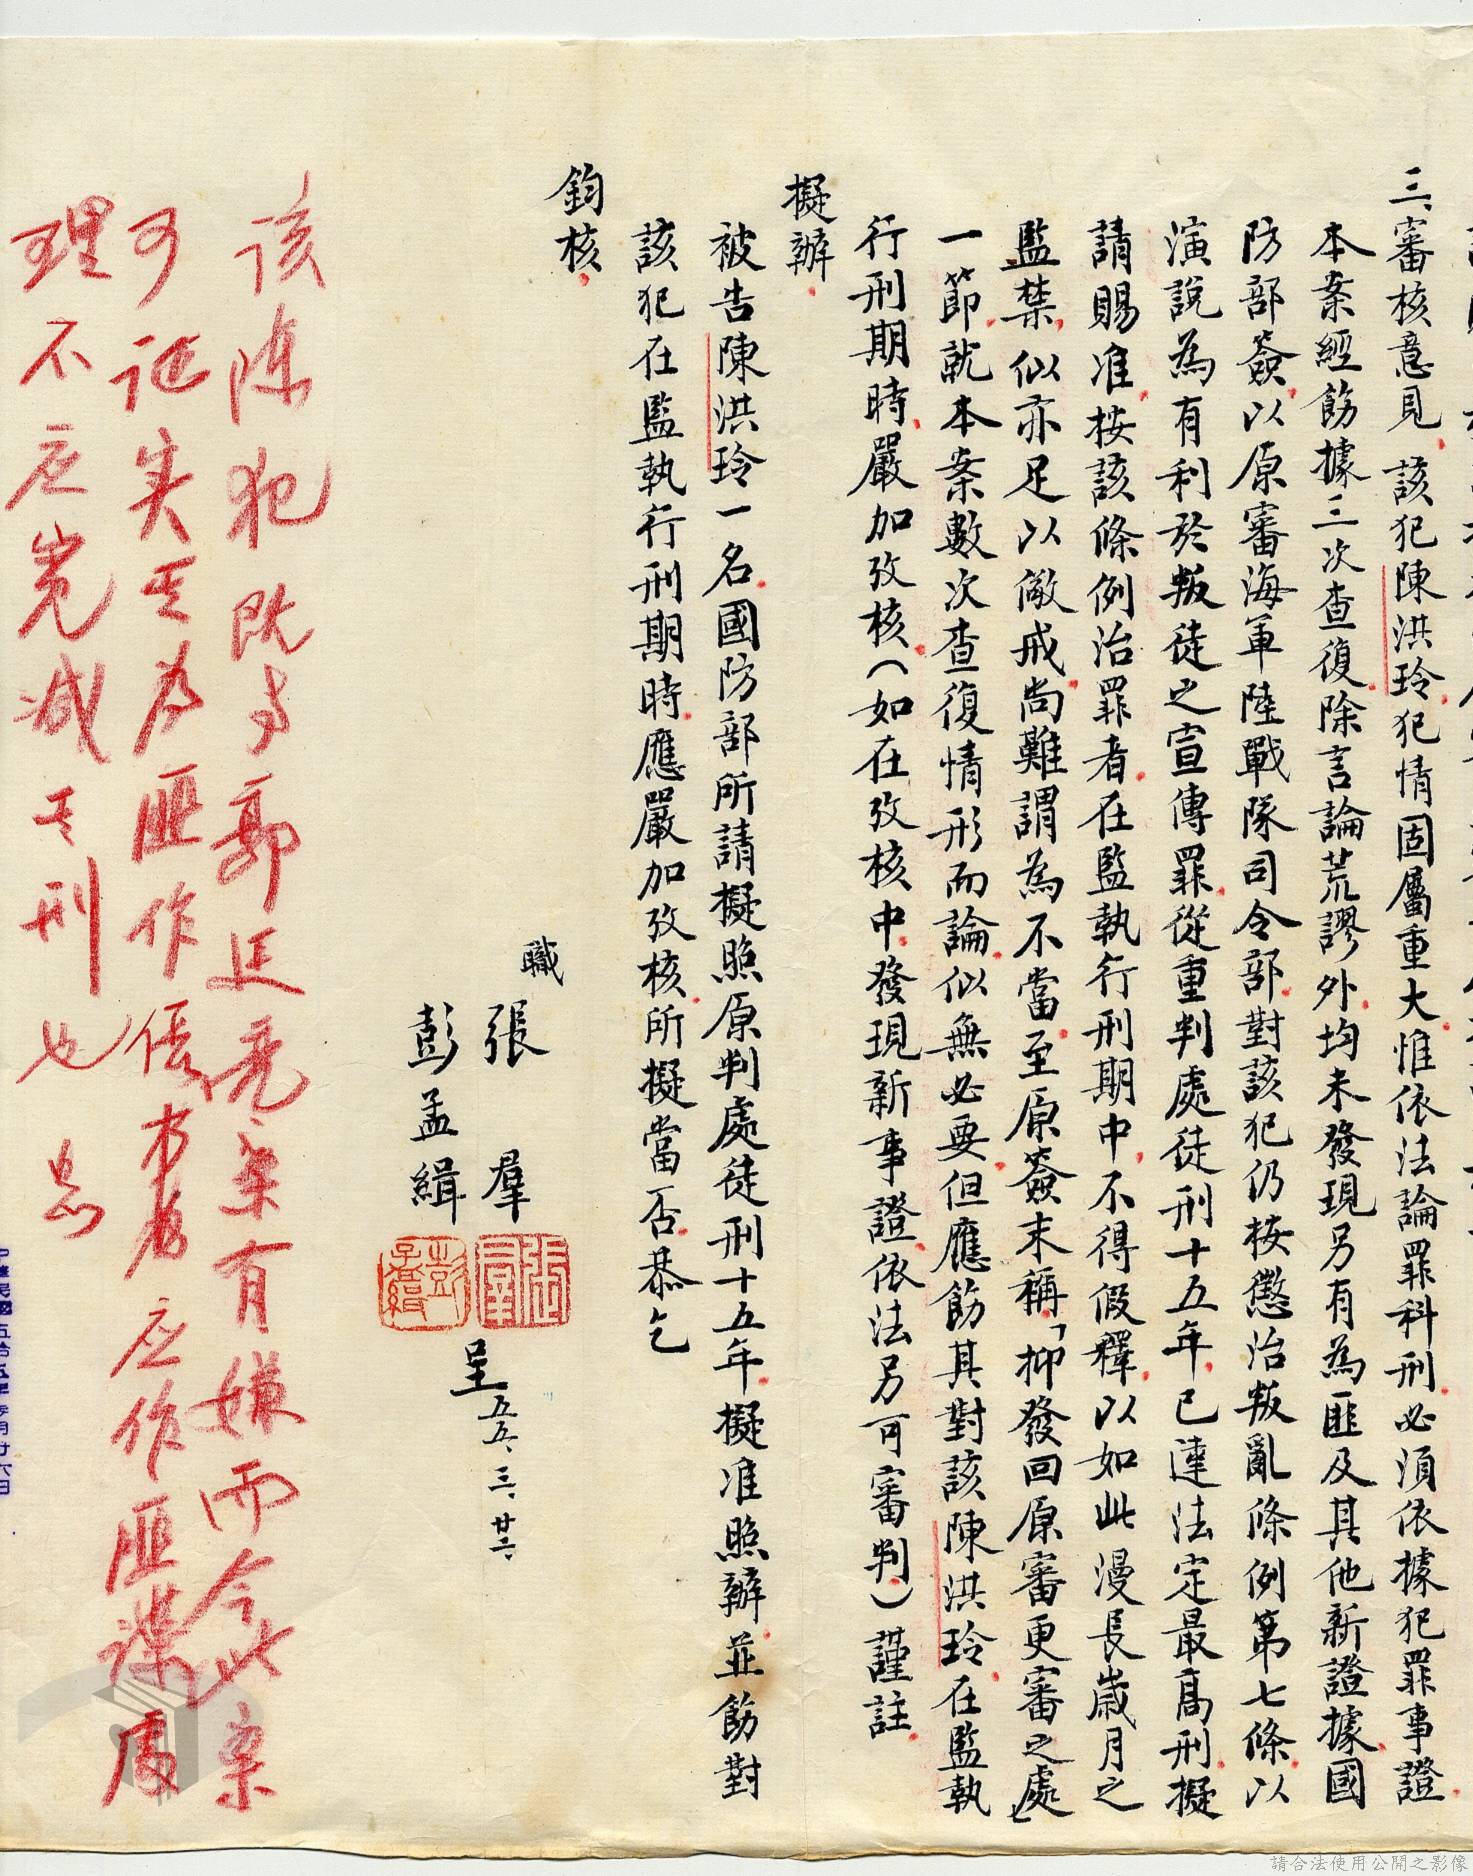 三、審核意見、該犯陳洪玲犯情固屬重大惟依法論罪科刑必須依據犯罪事證
本案經飭據三次查復除言論荒謬外均未發現另有為匪及其他新證據國
防部簽以原審海軍陸戰隊司令部對該犯仍按懲治叛亂條例第七條以
演說為有利於叛徒之宣傳罪從重判處徒刑十五年已達法定最高刑擬
請賜准按該條例治罪者在監執行刑期中不得假釋以如此漫長歲月之
監禁似亦足以儆戒尚難謂為不當至原簽末稱「抑發回原審更審之處」
一節就本案數次查復情形而論似無必要但應飭其對該陳洪玲在監執
行刑期時嚴加攷核(如在攷核中發現新事證依法另可審判)謹註
擬辦、
被告陳洪玲一名國防部所請擬照原判處徒刑十五年擬准照辦並飭對
該犯在監執行刑期時應嚴加攷核所擬當否恭乞
鈞核、
職
張羣
彭孟緝
呈
五五、三、廿二、
該陳犯既与郭廷亮案有嫌而今此案
可证实其為匪作倀者应作匪諜處
理不应寬减其刑也
中華民國五拾五年 月廿六日
請合法使用公開之影像